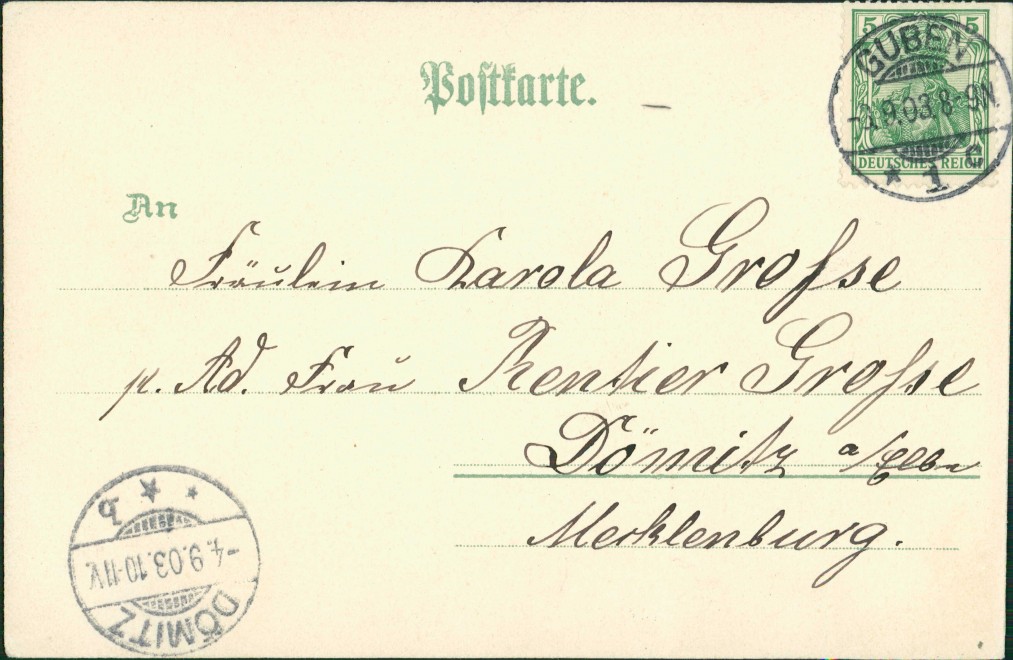 Postkarte.
5 5
DEUTSCHES REICH
GUBEN
9.03 8-9N.
* 1 c
An
Fräulein Karola Grosse
p. Ad. Frau Rentier Grosse
Dömitz a/Elbe
Mecklenburg.
DÖMITZ
-4.9.03.10-11V.
* *